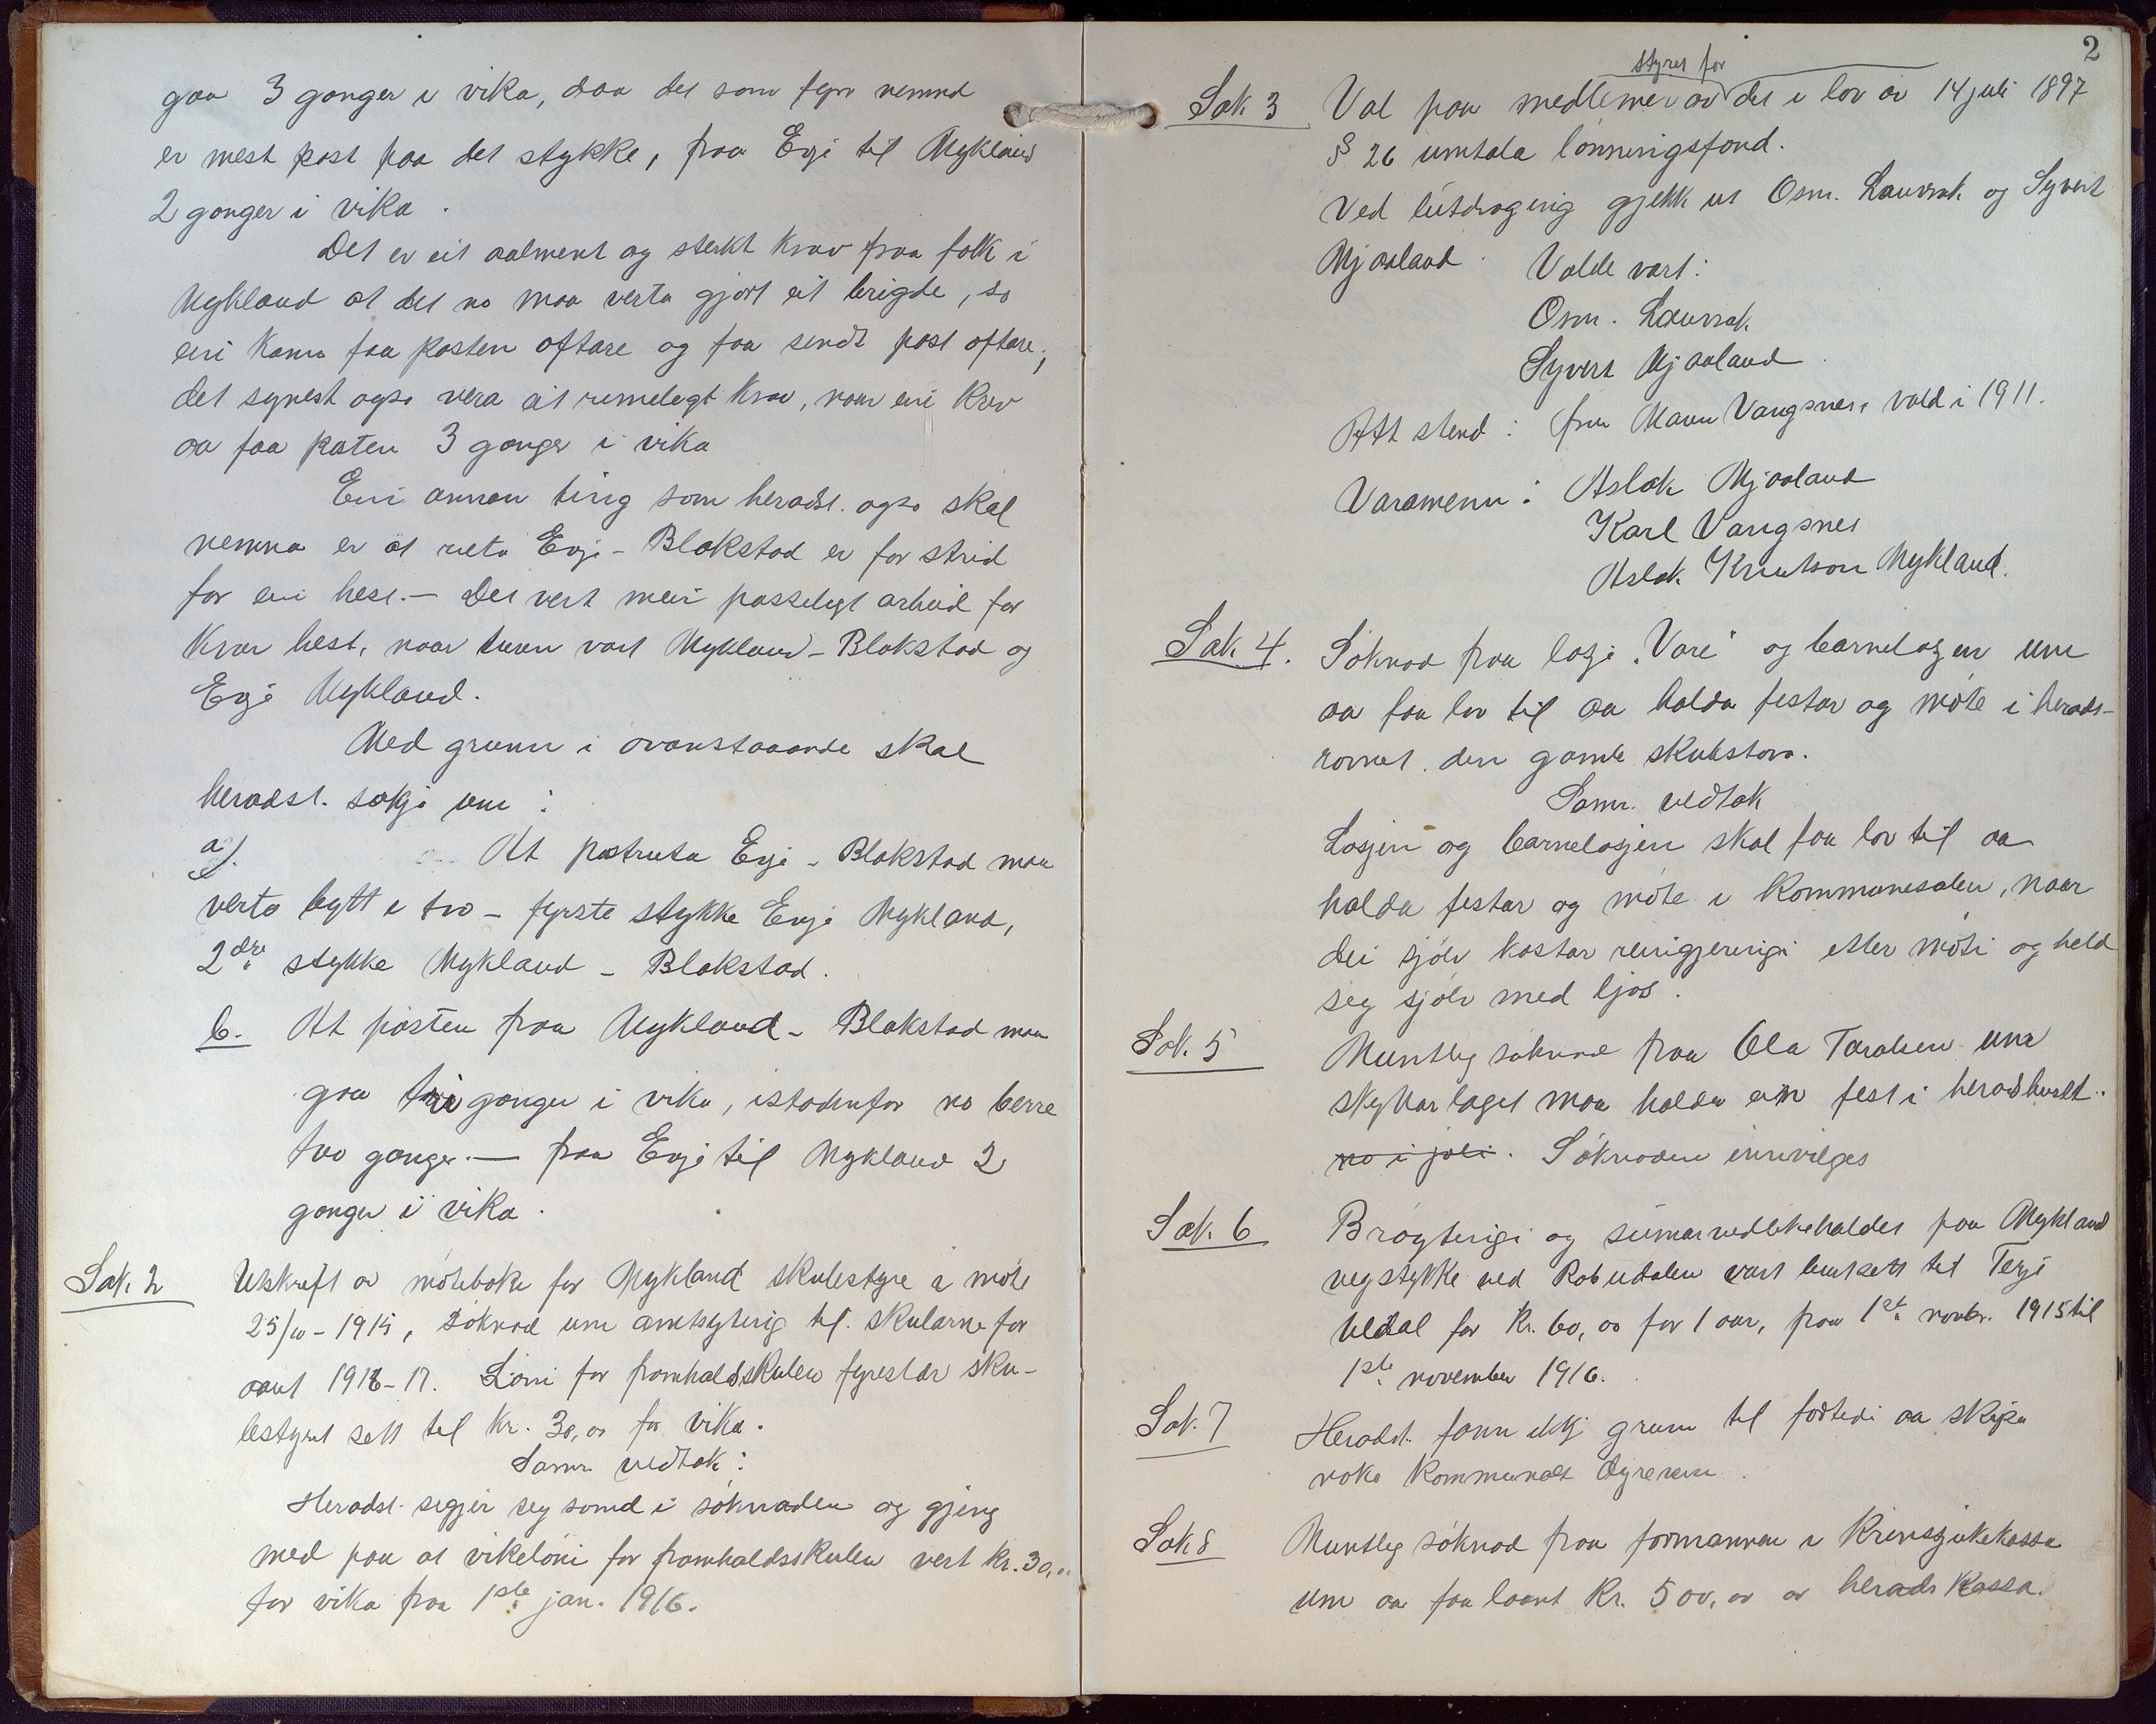 gaa 3 gonger i vika, daa det som fyrr nemnd
er mest post paa det stykke, fraa Evje til Mykland
2 gonger i vika.
Det er eit aalment og sterkt krav fraa folk i
Mykland at det no maa verta gjort eit brigde, so
ein kann faa posten oftare og faa sendt post oftare,
det synest ogso vera eit rimelegt krav, naar ein krev
aa faa posten 3 gonger i vika
Ein annan ting som heradst. ogso skal
nemna er at ruta Evje - Blakstad er for strid
for ein hest. — Det vert meir passelegt arbeid for
kvar hest, naar turen vart Mykland - Blakstad og
Evje Mykland.
Med grunn i ovanstaaande skal
heradst. søkja um:
a). At postruta Evje - Blakstad maa
verta bytt i tvo - fyrste stykke Evje Mykland,
2dre stykke Mykland - Blakstad.
b. At posten fraa Mykland - Blakstad maa
gaa tri gonger i vika, istadenfor no berre
tvo gonger. — fraa Evje til Mykland 2
gonger i vika.
Sak 2 Utskrift av møteboka for Mykland skulestyre i møte
25/10 - 1915, søknad um amtsyting til skularne for
aaret 1916-17. Løni for framhaldsskulen fyrestær sku-
lestyret sett til kr. 30,00 for vika.
Samr. vedtak:
Heradst. segjer seg samd i søknaden og gjeng
med paa at vikeløni for framhaldsskulen vert kr. 30,00
for vika fraa 1ste jan. 1916.
2
styret for
Sak 3 Val paa medlemer av det i lov av 14 juli 1897
§ 26 umtala lønningsfond.
Ved lutdraging gjekk ut Osm. Lauvrak og Syvert
Mjaaland. Valde vart:
Osm. Lauvrak
Syvert Mjaaland.
Att stend: fru Maren Vangsnes, vald i 1911.
Varamenn: Aslak Mjaaland
Karl Vangsnes
Aslak Knutson Mykland.
Sak 4. Søknad fraa losje "Vare" og barnelosjen um
aa faa lov til aa halda festar og møte i herads-
romet. den gamle skulestova.
Samr. vedtak
Losjen og barnelosjen skal faa lov til aa
halda festar og møte i kommunesalen, naar
dei sjølv kostar reingjeringi etter møti og held
seg sjølv med ljos.
Sak 5 Muntleg søknad fraa Ola Taraldsen um
skyttarlaget maa halda ein fest i heradshuset.
no i joli. Søknaden innvilges
Sak 6 Brøytingi og sumarvedlikehaldet paa Mykland
vegstykke ved Robudalen vart burtsett til Terje
Uldal for kr. 60,00 for 1 aar, fraa 1ste novbr. 1915 til
1ste november 1916.
Sak 7 Heradst. fann ikkj grunn til føretedi aa skipa
noko kommunalt
Sak 8 Muntleg søknad fraa formannen i Krinssjukekassa
um aa faa laant kr. 500,00 av herads kassa.